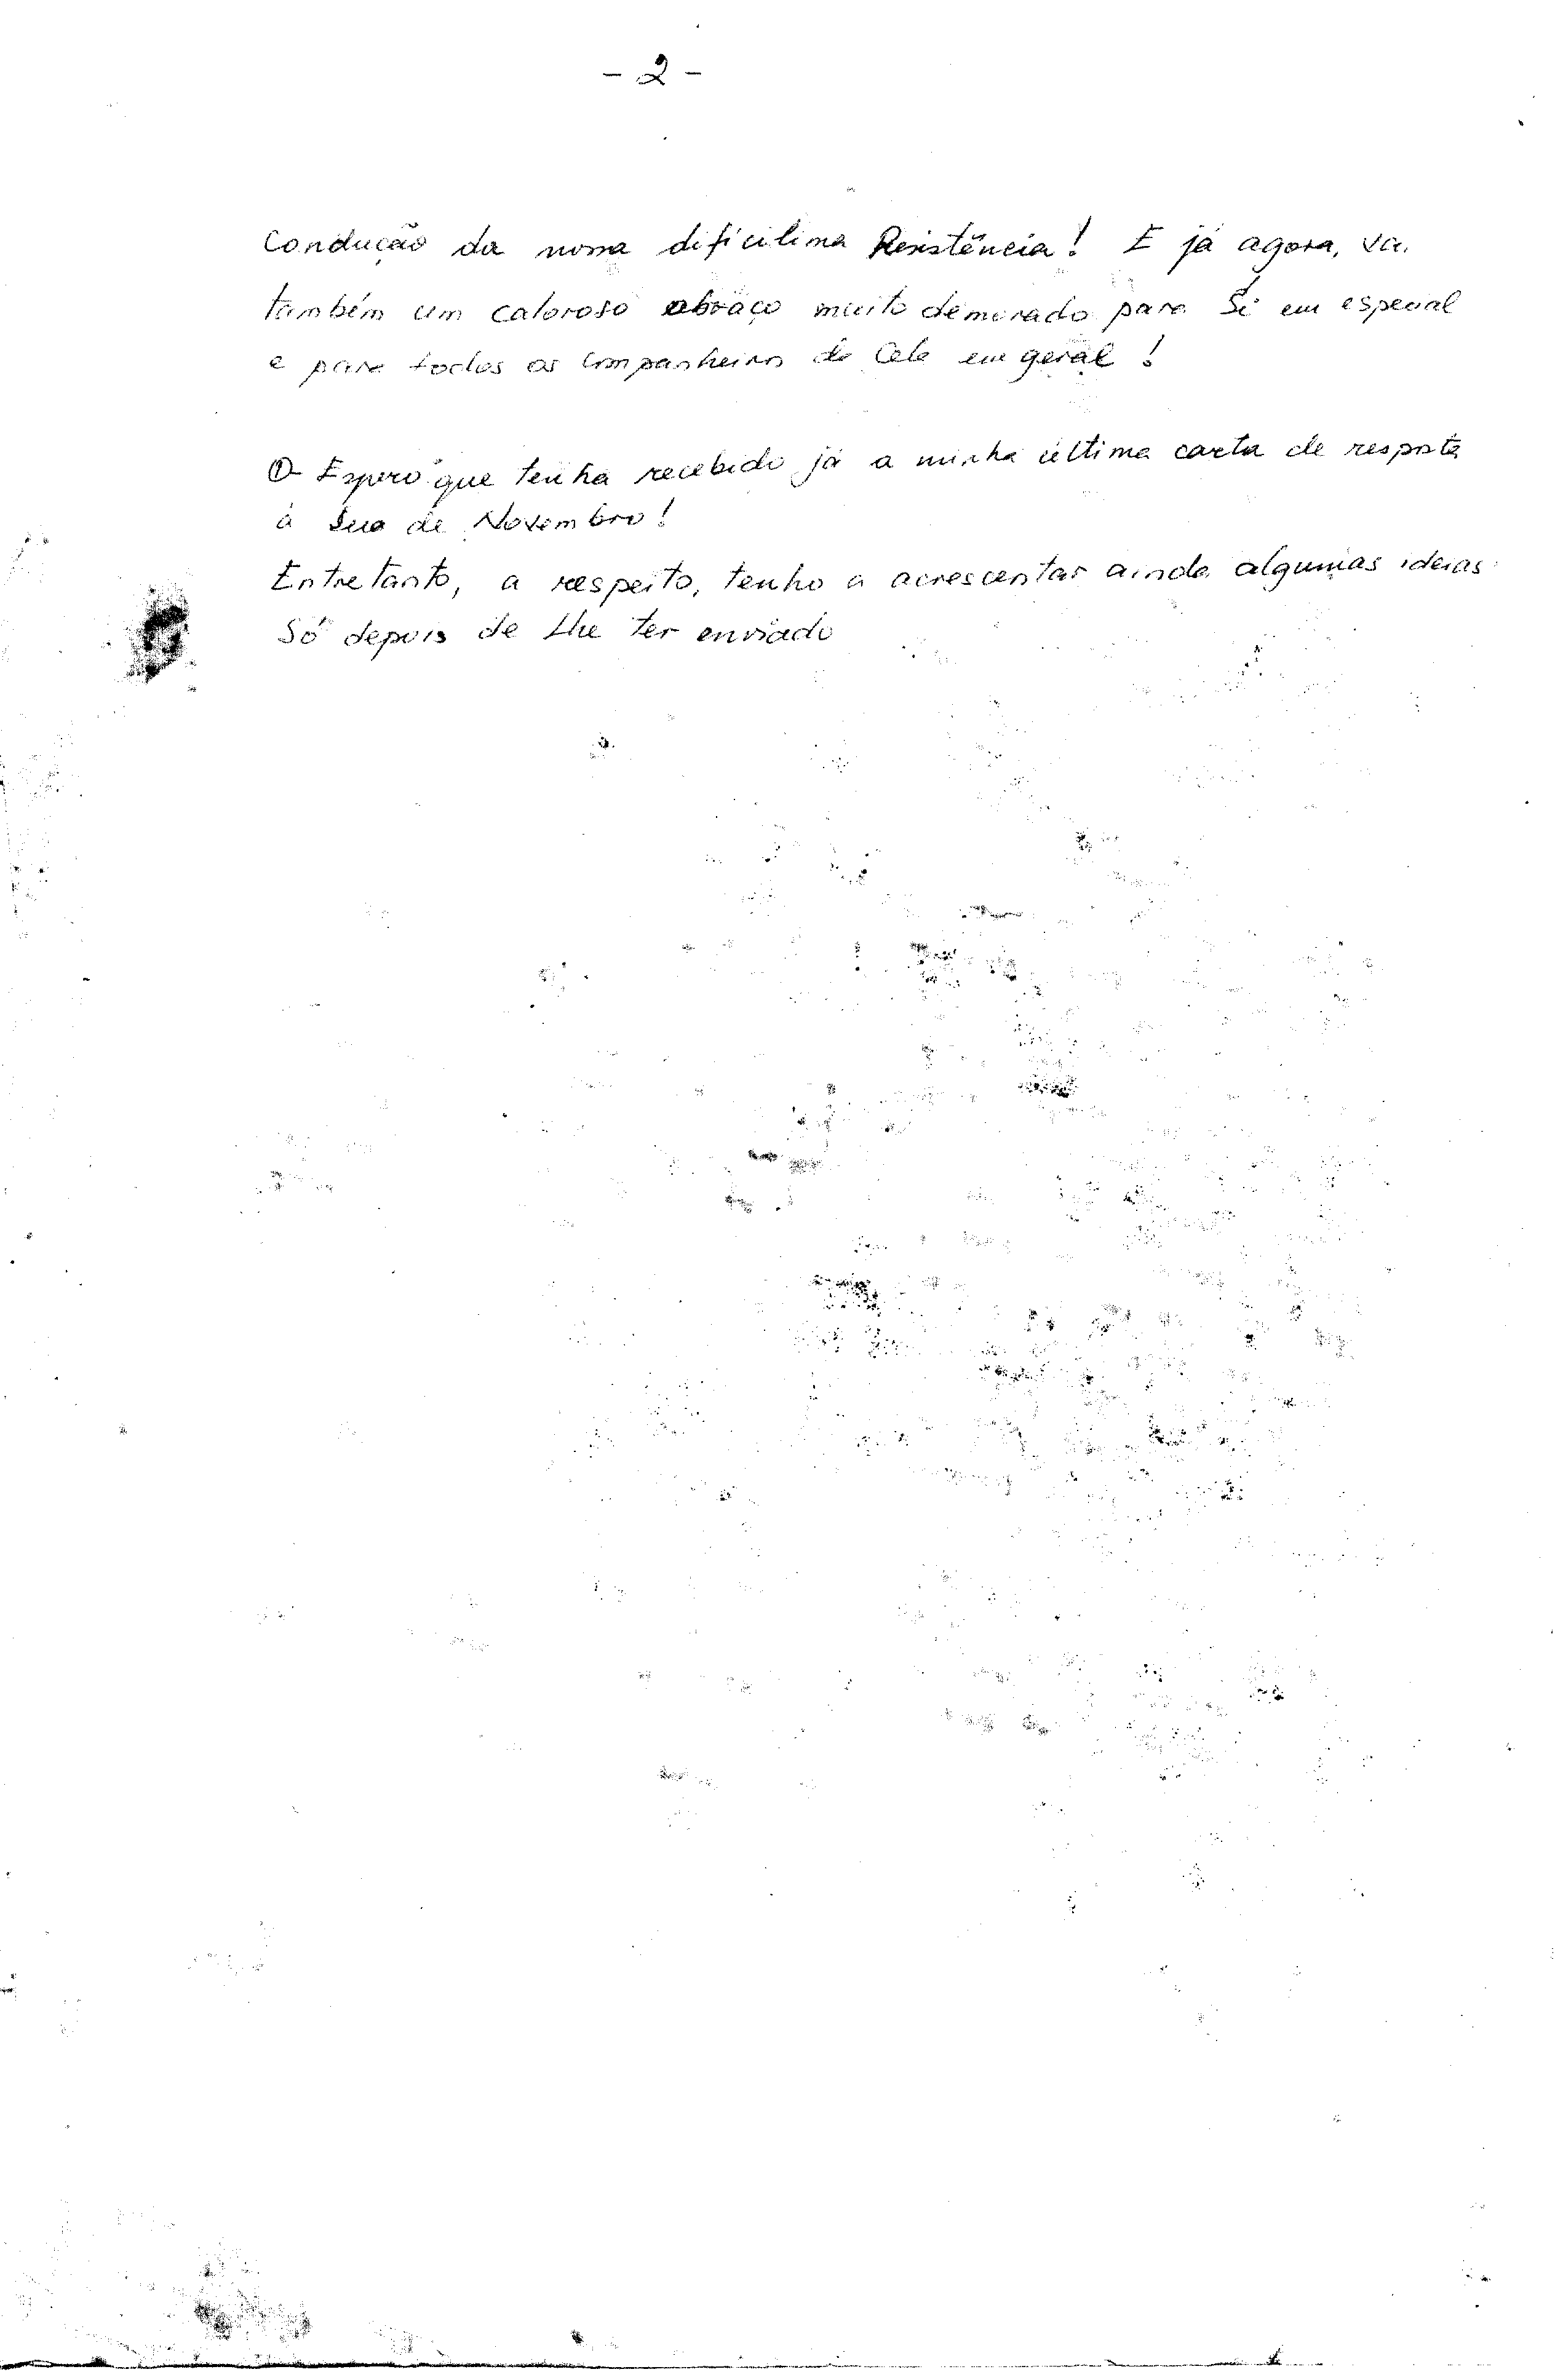 - 2 -
Condução da nossa dificílima Resistência! E já agora, vai
também um caloroso abraço muito demorado para Si em especial
e para todos os Companheiros do Cela em geral!
① Espero que tenha recebido já a minha última carta de resposta
à Sua de Novembro!
Entretanto, a respeito, tenho a acrescentar ainda algumas ideias
Só depois de Lhe ter enviado